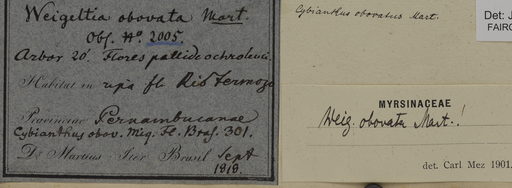 Weigeltia obovata Mart.
Obs. No. 2005.
Arbor 20' Flores pallide ochroleuci.
Habitat in ripa fl. Rio Formozo
Provinciae Pernambucanae
Cybianthus obov. Miq. Fl. Bras. 301.
Dr Martius Iter Brasil Sept
1818.
Cybianthus obovatus Mart.
Det: J
FAIRC
MYRSINACEAE
Weig. obovata Mart.!
det. Carl Mez 1901.